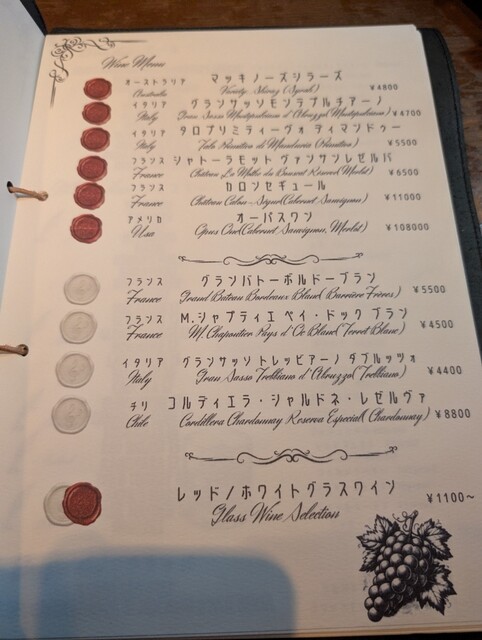 Wine Menu
オーストラリア マッキノーズシラーズ
Australia Variety: Shiraz (Syrah) ¥4800
イタリア グランサッソモンテプルチアーノ
Italy Gran Sasso Montepulciano d'Abruzzo(Montepulciano) ¥4700
イタリア タロプリミティーヴォ ディマンドゥー
Italy Talo Primitivo di Manduria (Primitivo) ¥5500
フランス シャトーラモット ヴァンサンレゼルバ
France Château La Mothe du Barry Reserve(Merlot) ¥6500
フランス カロンセギュール
France Château Calon-Ségur(Cabernet Sauvignon) ¥11000
アメリカ オーパスワン
Usa Opus One(Cabernet Sauvignon, Merlot) ¥108000
フランス グランバトーボルドーブラン
France Grand Bateau Bordeaux Blanc(Barrière Frères) ¥5500
フランス M.シャプティエ ペイ・ドック ブラン
France M. Chapoutier Pays d'Oc Blanc(Terret Blanc) ¥4500
イタリア グランサッソ トレッビアーノ ダブルッツォ
Italy Gran Sasso Trebbiano d'Abruzzo(Trebbiano) ¥4400
チリ コルディエラ・シャルドネ・レゼルヴァ
Chile Cordillera Chardonnay Reserva Especial(Chardonnay) ¥8800
レッド/ホワイトグラスワイン ¥1100~
Glass Wine Selection